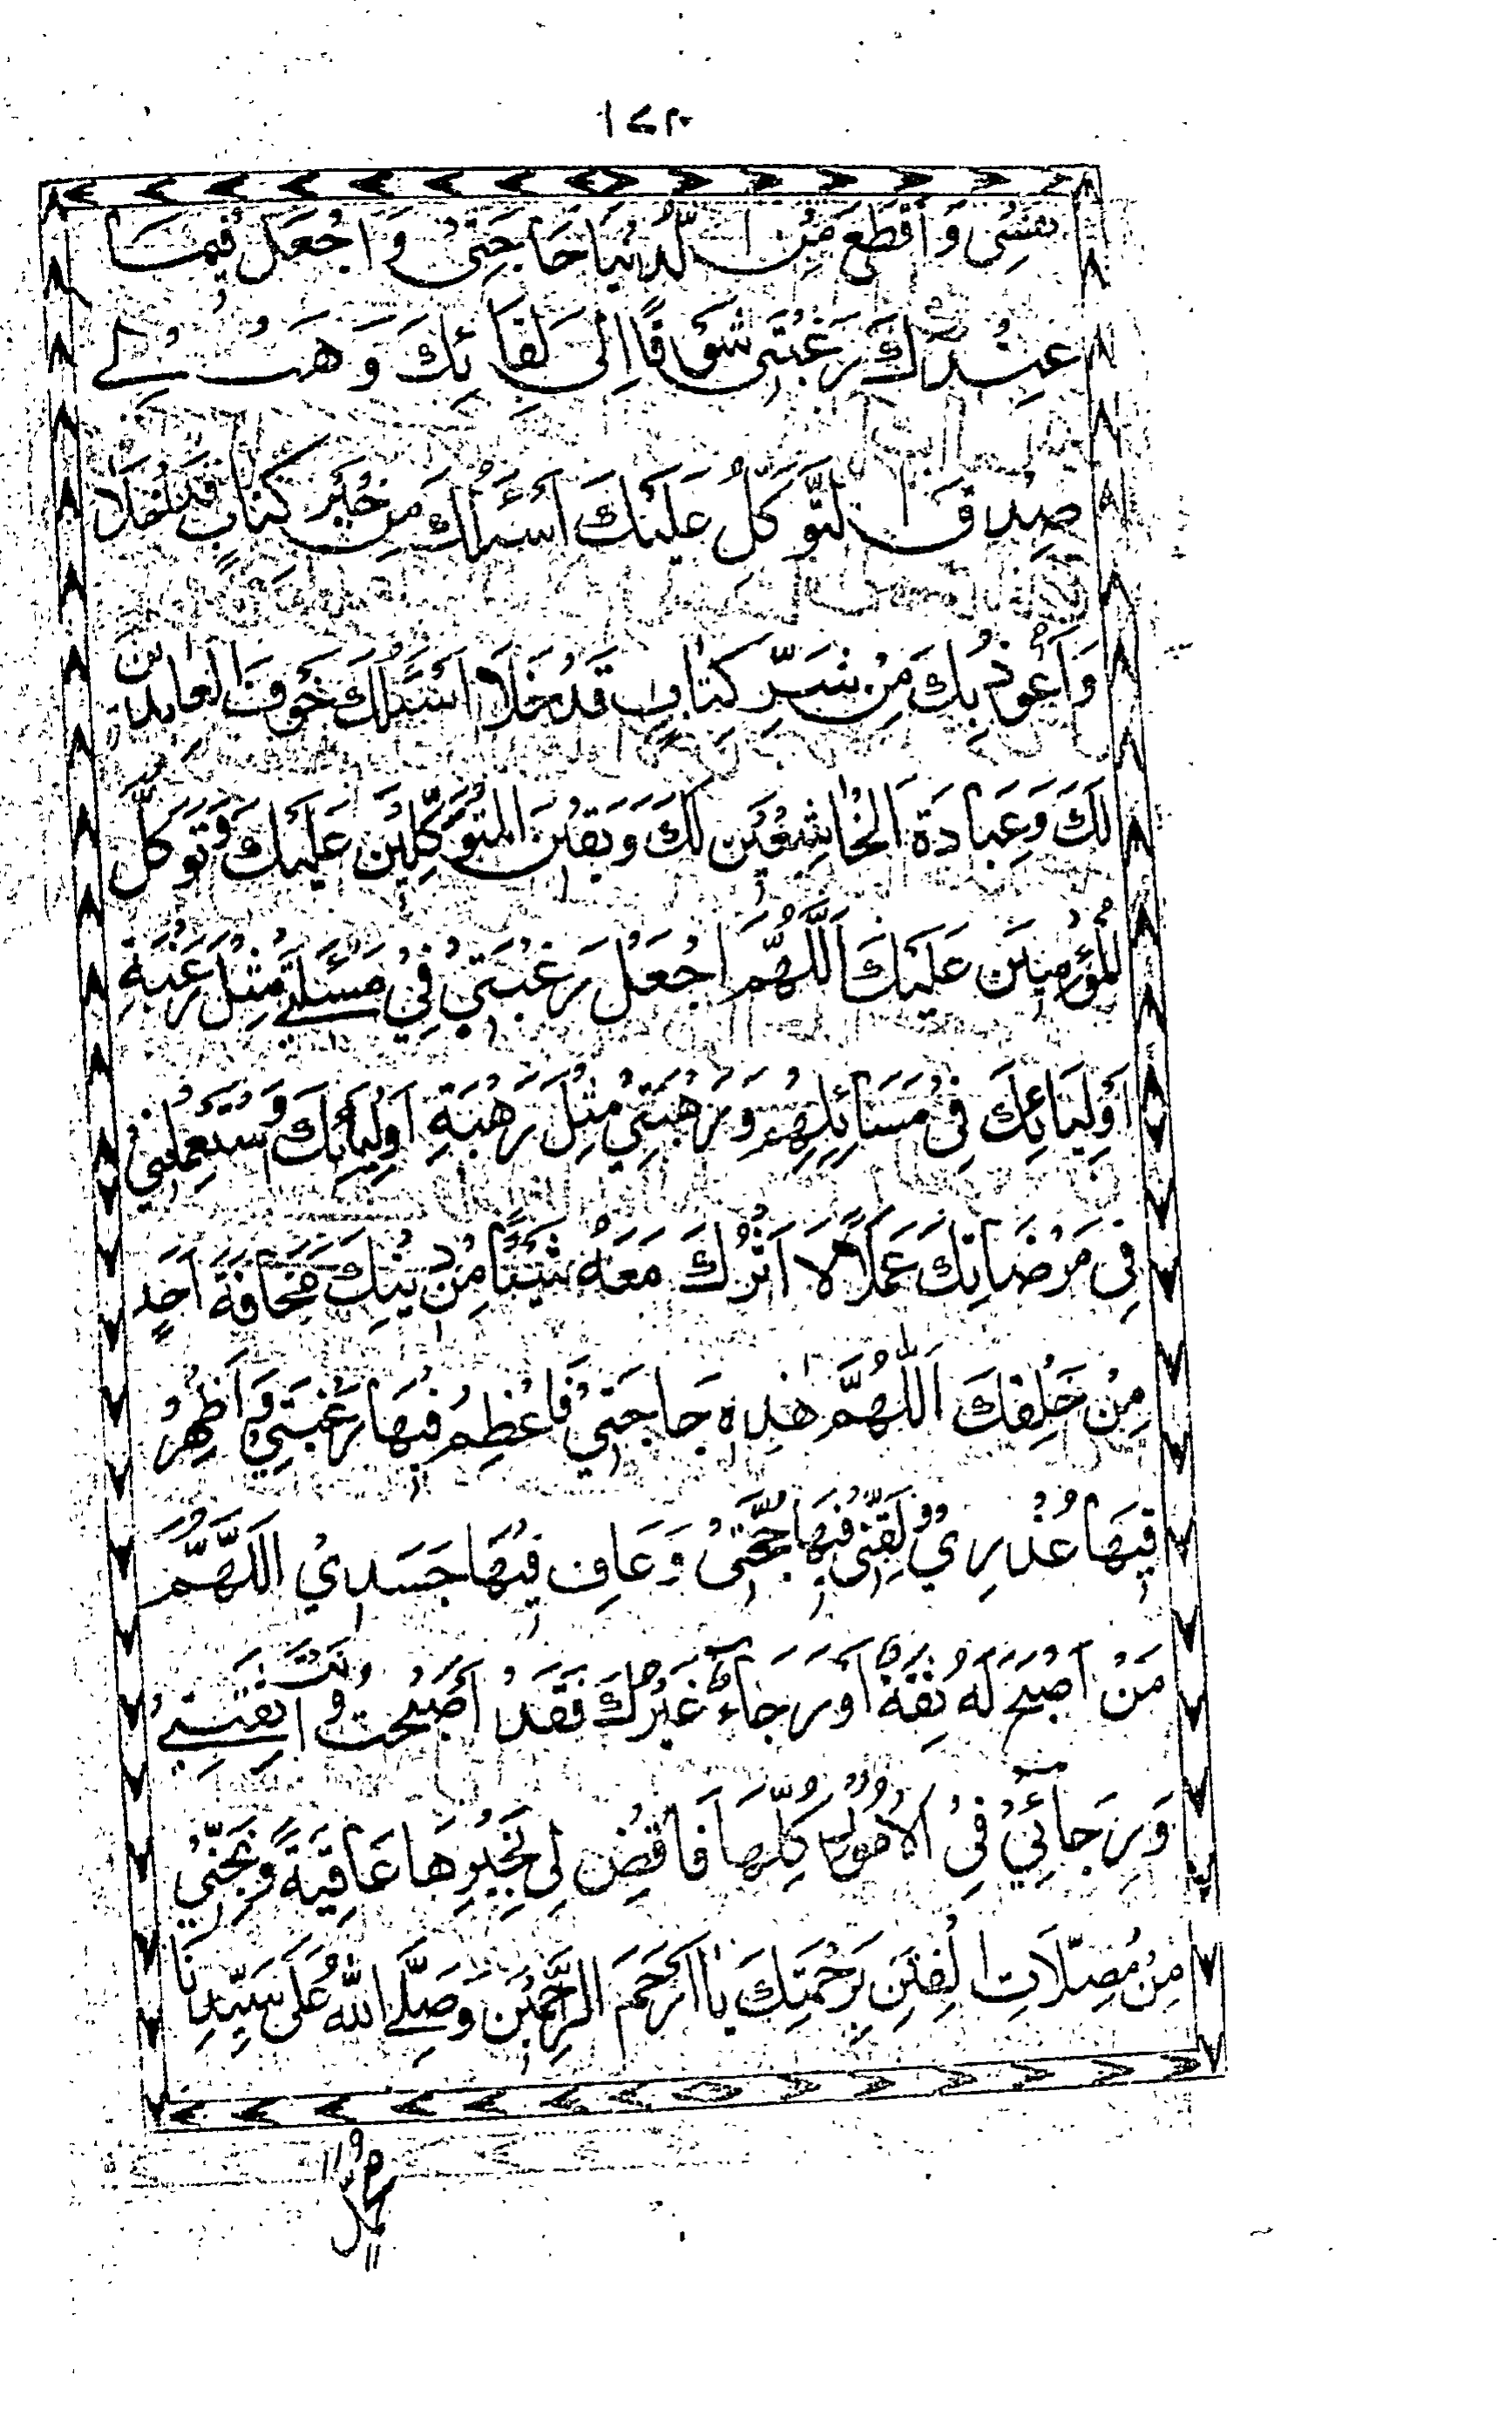 ١٤٣
نَفْسِي وَاقْطَعْ مِنَ الدُّنْيَا حَاجَتِيْ وَاجْعَلْ فِيْمَا
عِنْدَكَ رَغْبَتِيْ شَوْقًا اِلٰى لِقَائِكَ وَهَبْ لِيْ
صِدْقَ التَّوَكُّلِ عَلَيْكَ اَسْئَلُكَ مِنْ خَيْرِ كِتَابٍ قَدْ خَلَا
وَاَعُوْذُ بِكَ مِنْ شَرِّ كِتَابٍ قَدْ خَلَا اَسْئَلُكَ خَوْفَ الْعَابِدِيْنَ
لَكَ وَعِبَادَةَ الْخَاشِعِيْنَ لَكَ وَيَقِيْنَ الْمُتَوَكِّلِيْنَ عَلَيْكَ وَتَوَكُّلَ
الْمُؤْمِنِيْنَ عَلَيْكَ اَللّٰهُمَّ اجْعَلْ رَغْبَتِيْ فِيْ مَسْئَلَتِيْ مِثْلَ رَغْبَةِ
اَوْلِيَائِكَ فِيْ مَسَائِلِهِمْ وَرَهْبَتِيْ مِثْلَ رَهْبَةِ اَوْلِيَائِكَ وَسْتَعْمِلْنِيْ
فِيْ مَرْضَاتِكَ عَمَلًا لَا اَتْرُكُ مَعَهُ شَيْئًا مِنْ دِيْنِكَ مَخَافَةَ اَحَدٍ
مِنْ خَلْقِكَ اَللّٰهُمَّ هٰذِهِ حَاجَتِيْ فَاعْظِمْ فِيْهَا رَغْبَتِيْ وَاَظْهِرْ
فِيْهَا عُذْرِيْ وَلَقِّنِّيْ فِيْهَا حُجَّتِيْ وَعَافِ فِيْهَا جَسَدِيْ اَللّٰهُمَّ
مَنْ اَصْبَحَ لَهُ ثِقَةٌ اَوْ رَجَاءٌ غَيْرُكَ فَقَدْ اَصْبَحْتُ وَاَنْتَ ثِقَتِيْ
وَرَجَائِيْ فِي الْاُمُوْرِ كُلِّهَا فَاقْضِ لِيْ بِخَيْرِهَا عَاقِبَةً وَنَجِّنِيْ
مِنْ مُضِلَّاتِ الْفِتَنِ بِرَحْمَتِكَ يَا اَرْحَمَ الرَّحِمِيْنَ وَصَلَّى اللّٰهُ عَلٰى سَيِّدِنَا